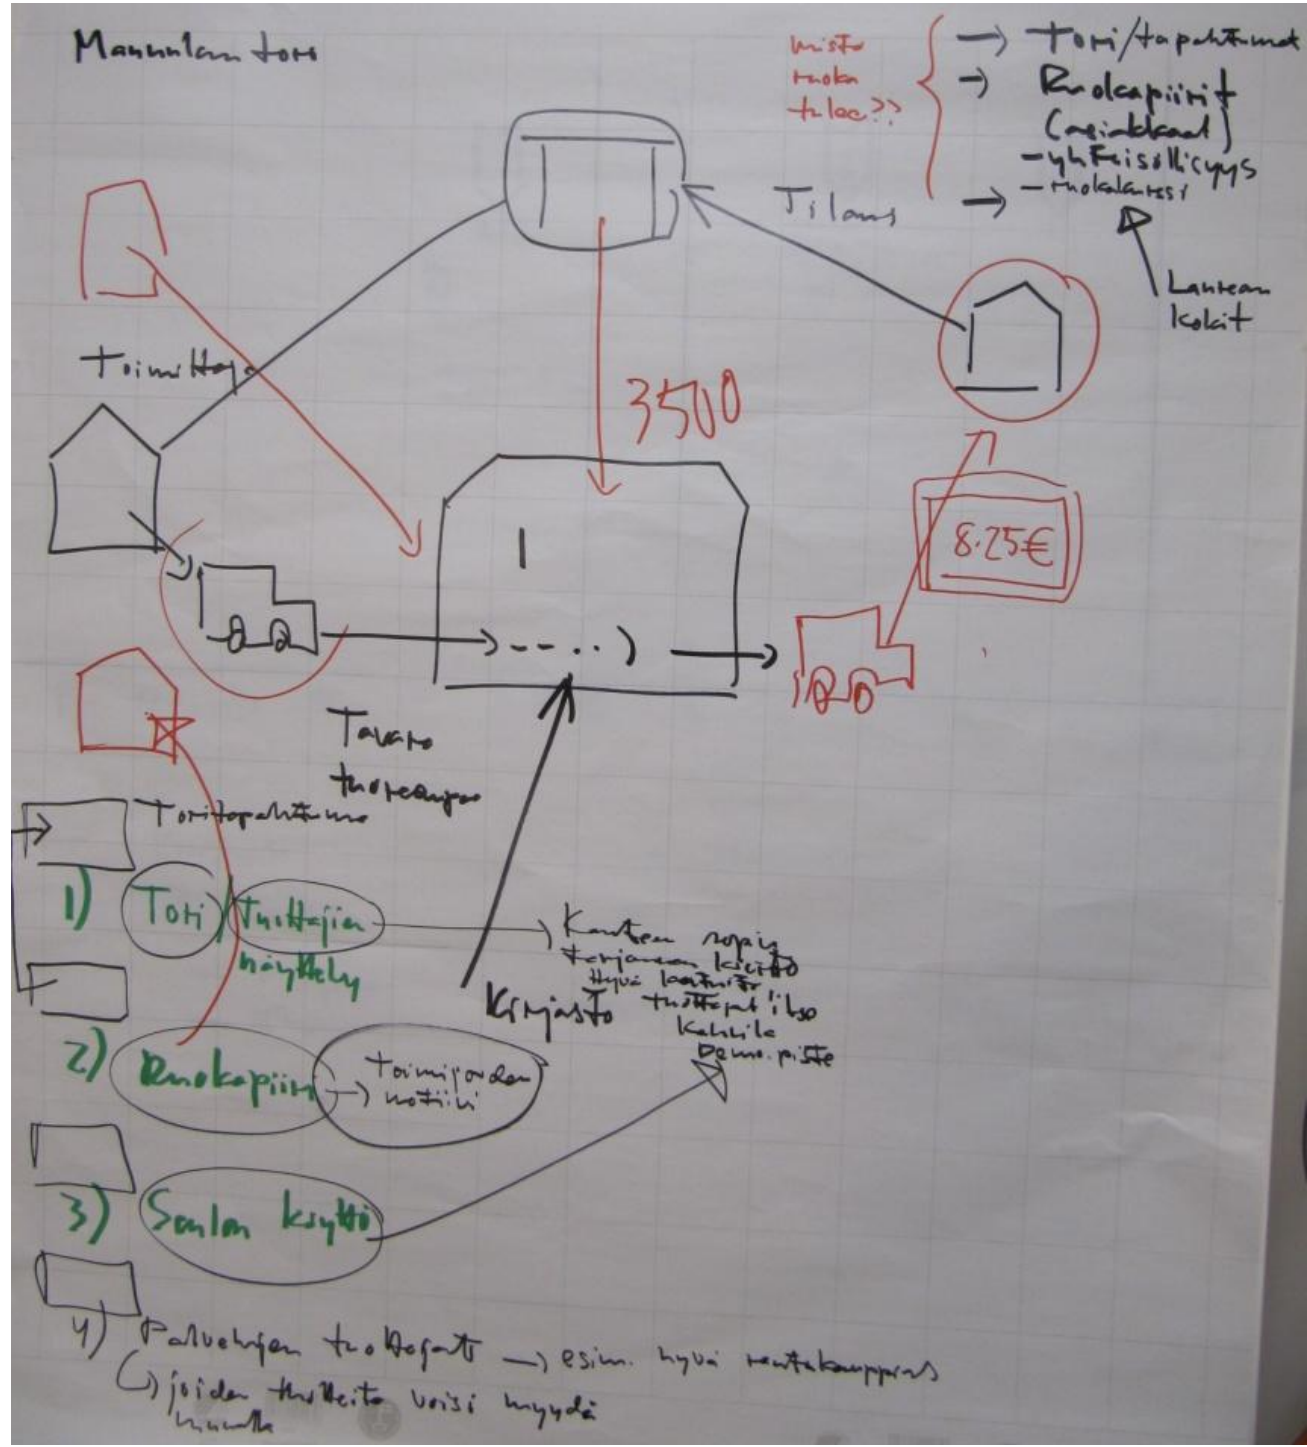 Maunulan tori
mistä
ruoka
tulee??
→ Tori/tapahtumat
→ Ruokapiirit
(asiakkaat)
- yhteisöllisyys
- ruokakurssi
Tilaus
Laurean
kokit
Toimittaja
3500
8.25€
Tavara
Toritapahtuma
1) Tori / Tuottajien
näyttely
Kirjasto
tuottajat itse
Kahvila
Demo.piste
2) Ruokapiiri → Toimijoiden
3) Saulan käyttö
4) Palvelujen tuottajat → esim. hyvä rautakauppias
joiden tuotteita voisi myydä
muualla